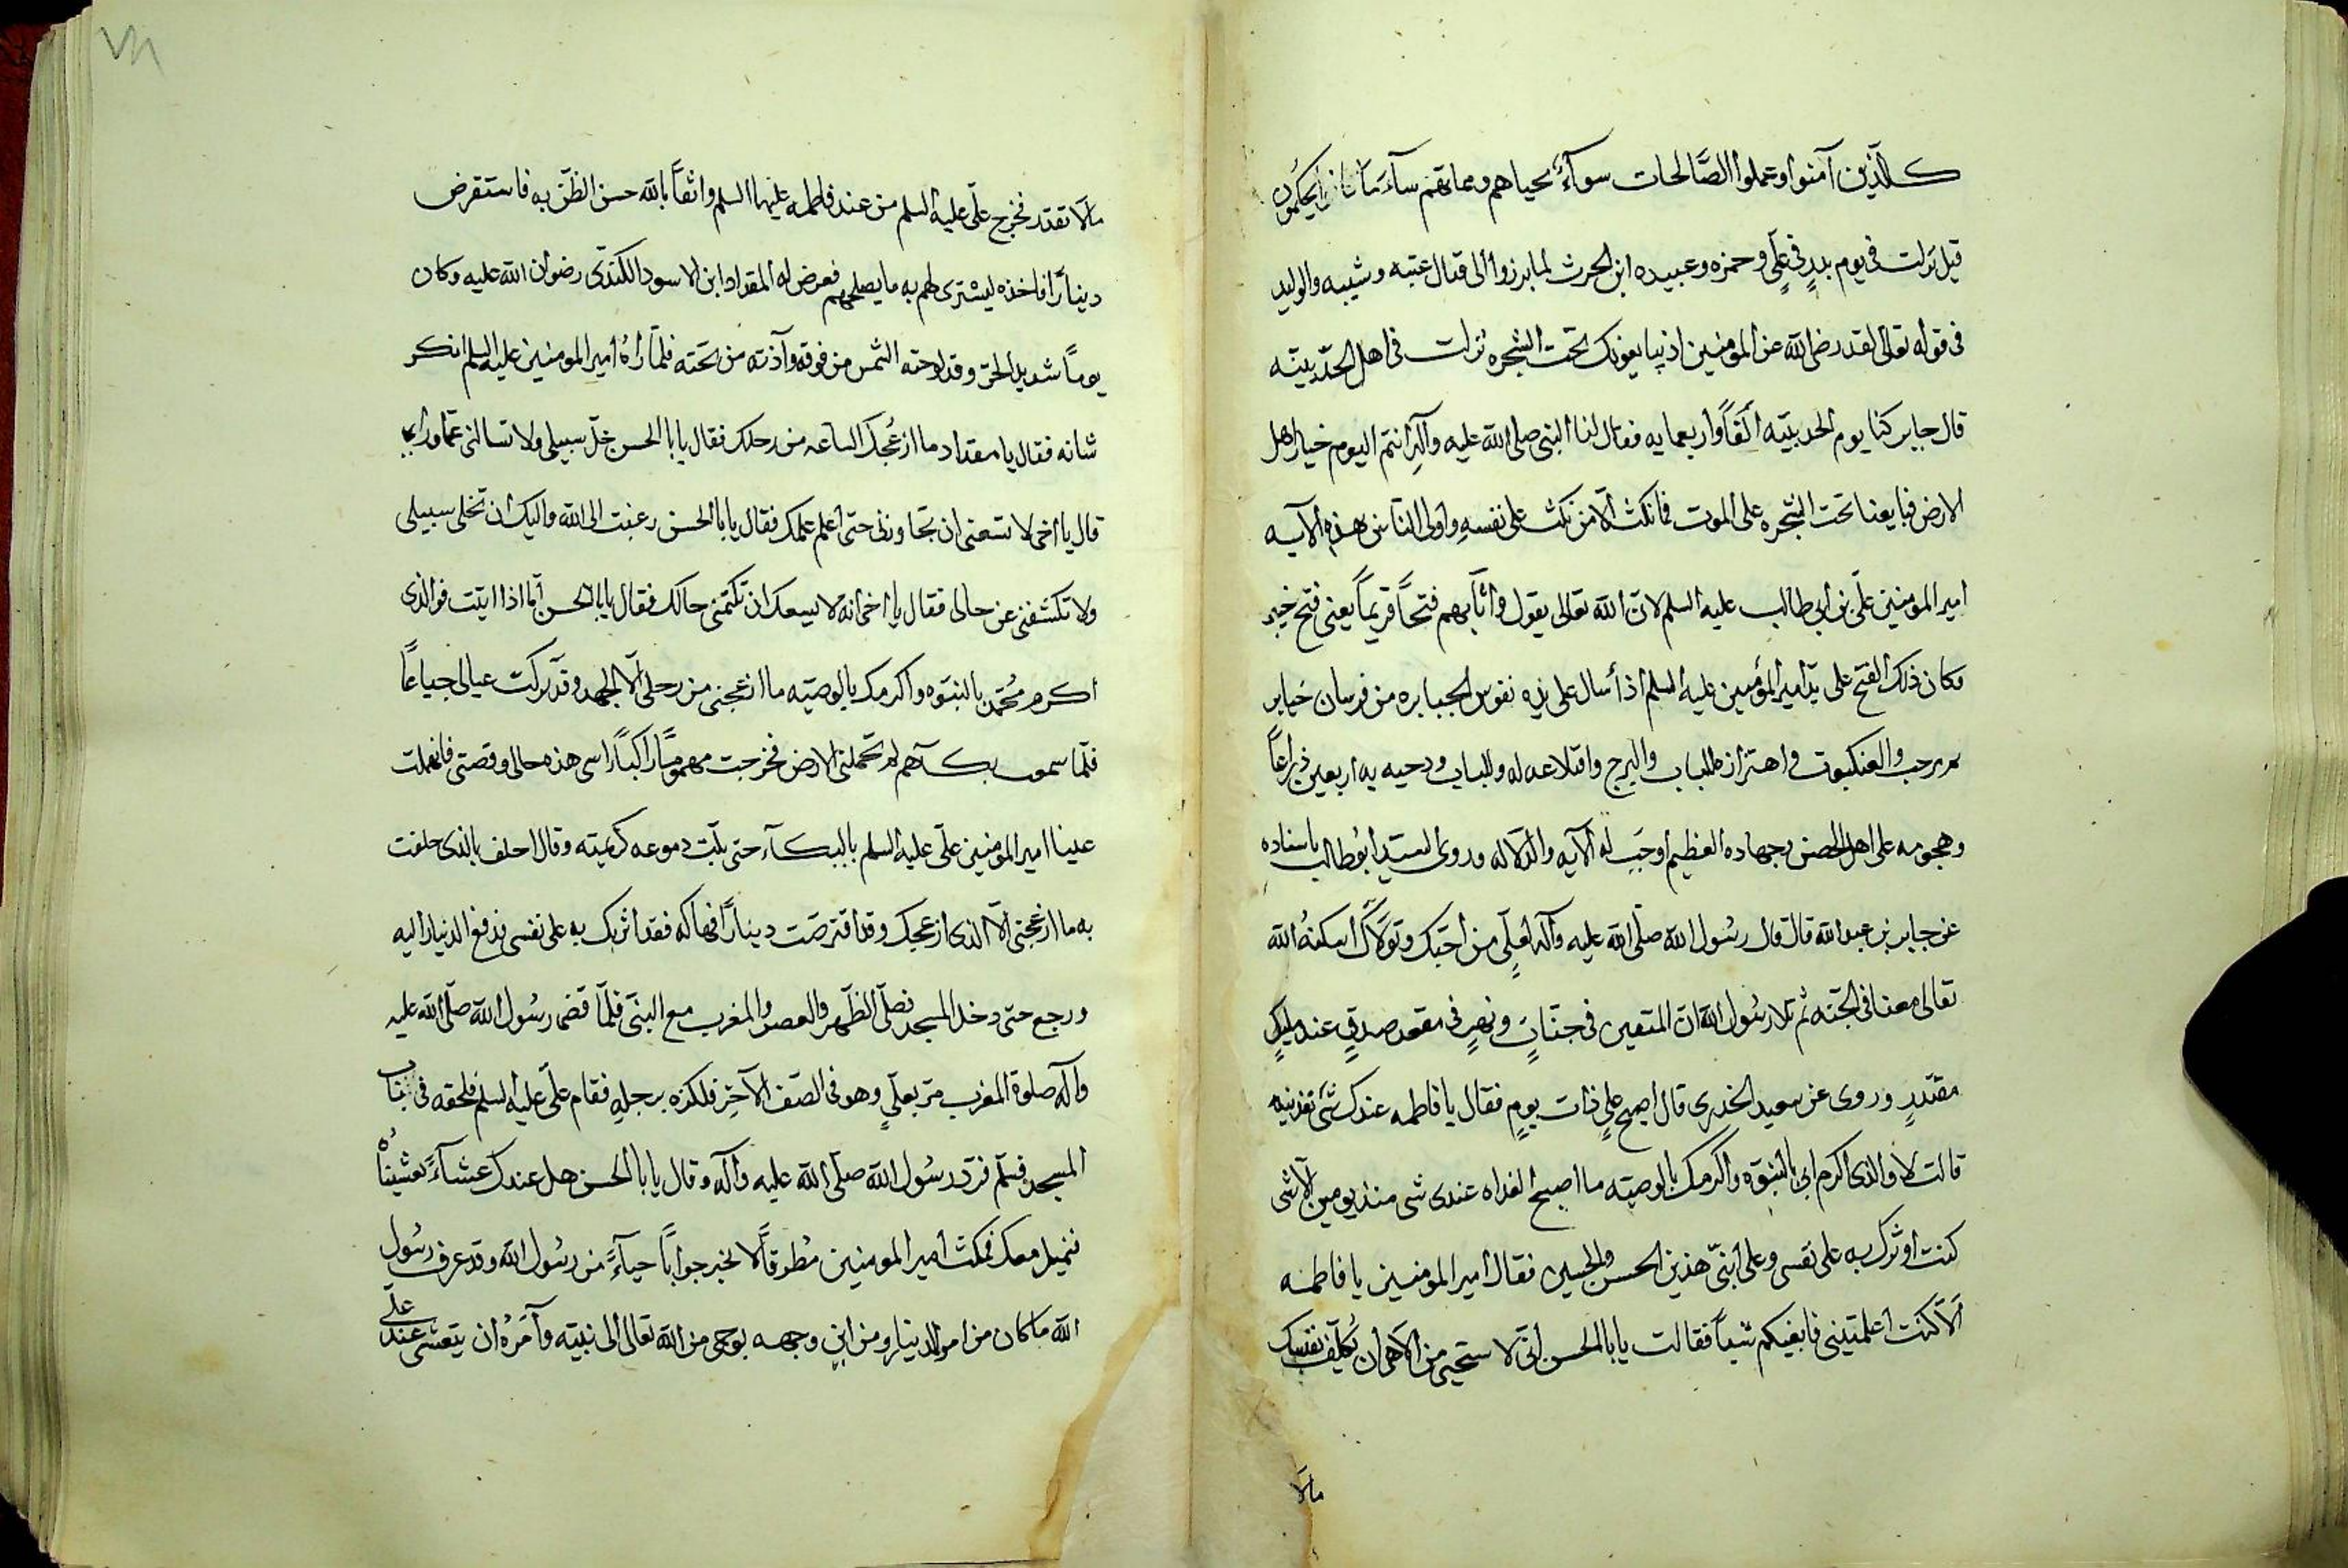 كالّذين آمنوا وعملوا الصّالحات سوآءً محياهم ومماتهم سآء ما يحكمون
قيل نزلت فى يوم بدرٍ فى علىٍّ وحمزه وعبيده ابن الحرث لما برزوا الى قتال عتبه وشيبه والوليد
فى قوله تعالى لقد رضى الله عن المومنين اذ يبايعونك تحت الشجره نزلت فى اهل الحديبيّه
قال جابر كنّا يوم الحديبيّه الفاً واربعمايه فقال لنا النبى صلى الله عليه وآله انتم اليوم خيار اهل
الارض فبايعنا تحت الشّجره على الموت فما نكث الّا من نكث على نفسهِ واولى النّاس بهذه الآيه
امير المومنين علّى بن ابى طالب عليه السلم لانّ الله تعالى يقول واثابهم فتحاً قريباً يعنى فتح خيبر
وكان ذلك الفتح على يد امير المؤمنين عليه السلم اذ أسال على يده نفوس الجبابره من فرسان خيابر
كمرحب والعنكبوت واهتزازه للباب والبرج واقتلاعه له وللباب ودحيه به اربعين ذراعاً
وهجومه على اهل الحصن وجهاده العظيم اوجَب له الآيه والدّلاله وروى السيّد ابُوطالب باسناده
عن جابر بن عبدالله قال قال رسُول الله صلّى الله عليه وآله لعلىٍّ من احبّك وتولّاك اسكنهُ الله
تعالى معنا فى الجنّه ثم تلا رسُول الله انّ المتقين فى جنّاتٍ ونهرٍ فى مقعد صدقٍ عند مليكٍ
مقتدرٍ وروى عن سعيد الخدرى قال اصبح علىٍ ذات يومٍ فقال يا فاطمه عندك شئ تغذينيه
قالت لا والذى اكرم ابى بالنبوّه واكرمك بالوصيّه ما اصبح الغداه عندى شى منذ يومين الّا شى
كنت اوثرك به على نفسى وعلى ابنىّ هذين الحسن والحسين فقال امير المومنين يا فاطمه
الّا كنت اعلمتينى فابغيكم شياً فقالت يابا الحسن انّى لاستحيى من الٓاهى ان تُكلّف نفسك
مالا
مالا تقدر فخرج علّى عليه السلم من عند فاطمه عليها السلم واثقاً بالله حسن الظنّ به فاستقرض
ديناراً فاخذه ليشترى لهم به ما يصلحهم فعرض له المقداد ابن الاسود الكندّى رضوان الله عليه وكان
يوماً شديد الحرّ وقد لوحته الشمس من فوقه وآذته من تحته فلمّا رآهُ امير المومنين عليه السلم انكر
شانه فقال يا مقداد ما ازعُجك الساعه من رحلك فقال يابا الحسن خلّ سبيلى ولا تسالنى عمّا ورايى
قال يا اخى لا تسعنى ان تجاوزنى حتى اعلم علمك فقال يابا الحسن رغبت الى الله واليك ان تخلى سبيلى
ولا تكشفنى عن حالى فقال يا اخى انه لا يسعك ان تكتمنى حالك فقال يابا الحسن امّا اذا ابيت فوالذى
اكرم مُحمّد بالنبوّه واكرمك بالوصيّه ما ازعجنى من رحلى الّا الجهد وقد تركت عيالى جياعاً
فلمّا سمعت بكآهم لم تحملنى الارض فخرجت مهموماً راكباً راسى هذه حالى وقصتى فانهملت
عينا امير المومنين علّى عليه السلم بالبكآء حتى بلّت دموعه كريمته وقال احلف بالذى حلفت
به ما ازعجنى الّا الذى ازعجك وقد اقترضت ديناراً فهاكه فقد اثرتك به على نفسى فدفع الدينار اليه
ورجع حتى دخل المسجد فصلّى الظّهر والعصر والمغرب مع النبى فلمّا قضى رسُول الله صلّى الله عليه
وآله صلوة المغرب مرّ بعلىٍ وهو فى الصّف الآخر فلكزه برجله فقام علّى عليه السلم فلحقه فى باب
المسجد فسلّم فردّ رسُول الله صلّى الله عليه وآله وقال يابا الحسن هل عندك عشآءً تعشيناهُ
فنميل معك فمكث امير المومنين مُطرقاً لا يحير جواباً حيآءً من رسُول الله وقد عرف رسُول
الله ما كان من امر الدينار ومن اين وجهه بوحى من الله تعالى الى نبيّه وآمَرهُ ان يتعشى عند علّى